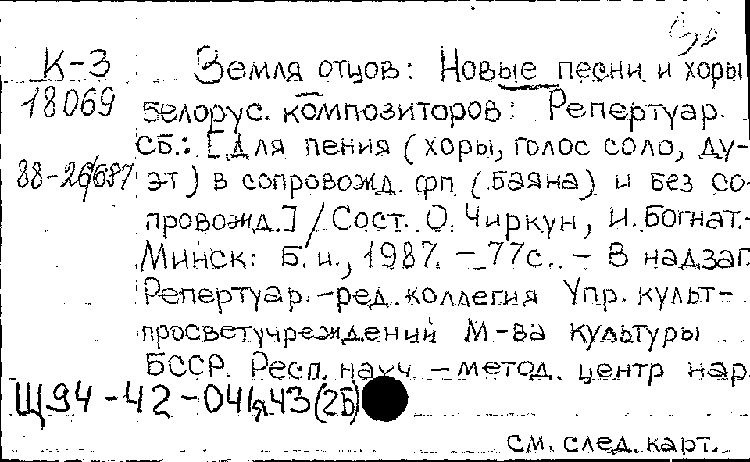 К-3 Земля отцов: Новые песни и хоры
18069 белорус. композиторов: Репертуар.
сб.: [Для пения (хоры, голос соло, ду-
88-26687 эт) в сопровожд. фп (баяна) и без со-
провожд.] / Сост. О. Чиркун, И. Богнат.-
Минск: Б. и., 1987. - 77с. - В надзаг
Репертуар.-ред. коллегия Упр. культ-
просветучреждений М-ва культуры
БССР. Респ. науч. - метод. центр нар.
Щ94-42-04я43(2Б)
см. след. карт.